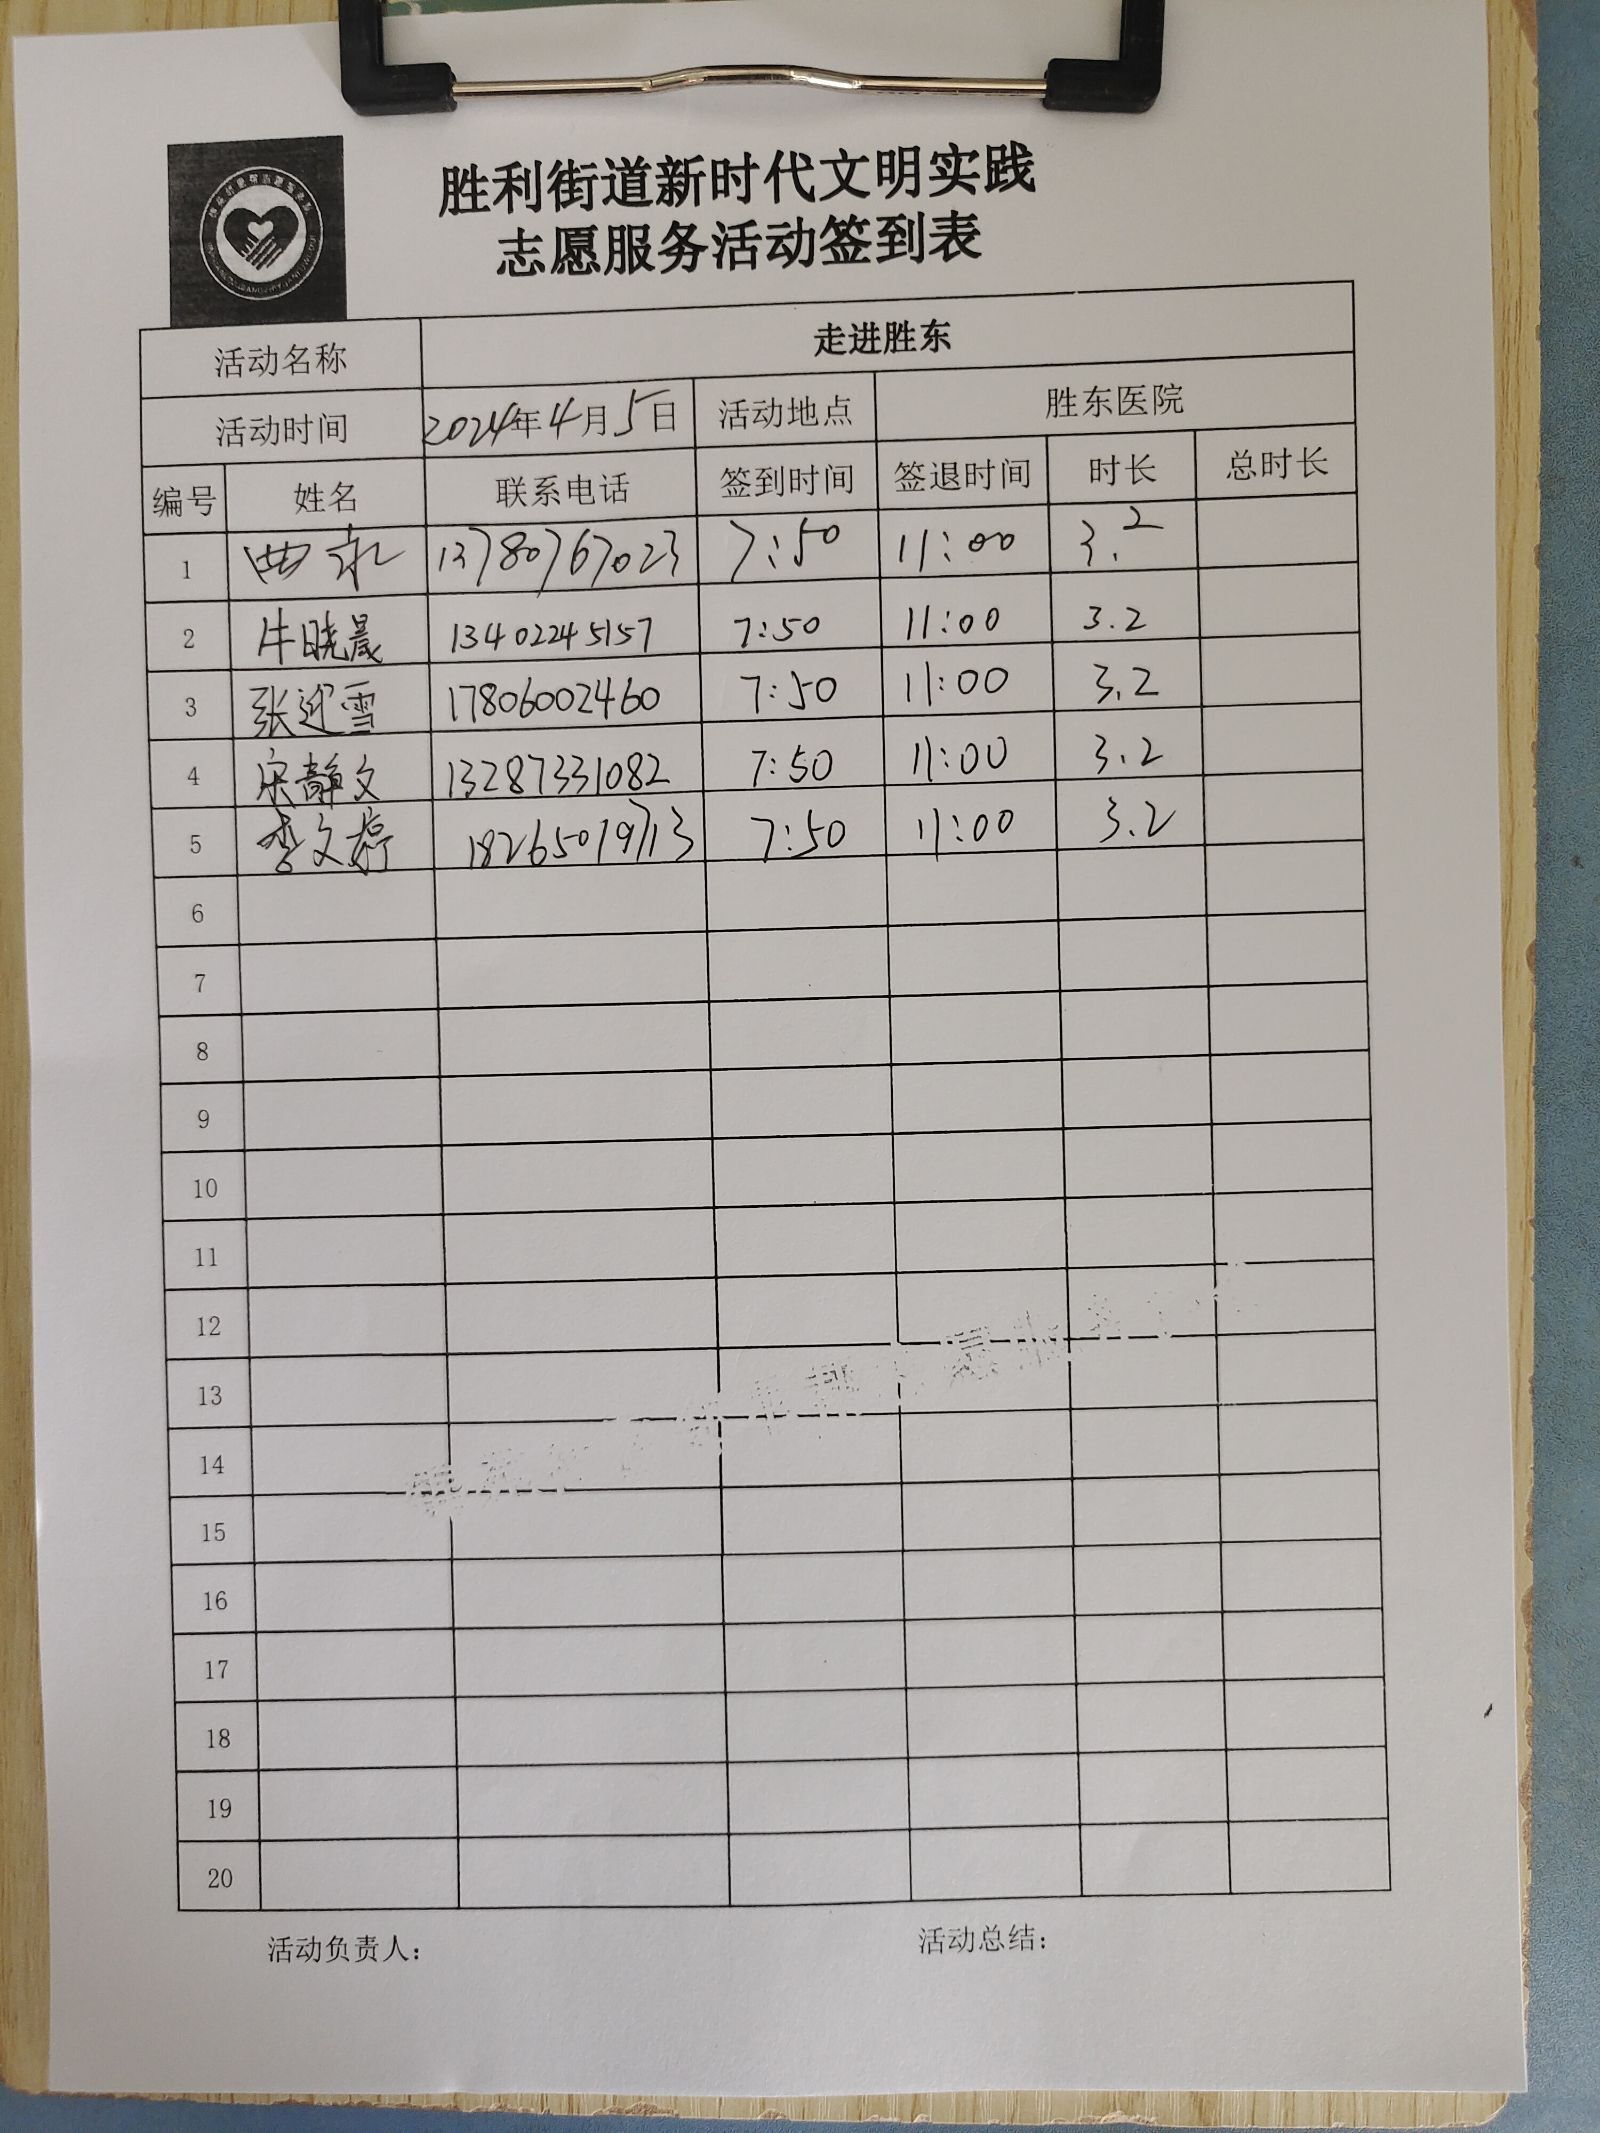 胜利街道新时代文明实践
志愿服务活动签到表
活动名称 走进胜东
活动时间 2024年4月5日 活动地点 胜东医院
编号 姓名 联系电话 签到时间 签退时间 时长 总时长
1 13780767023 7:50 11:00 3.2
2 牛晓晟 13402245157 7:50 11:00 3.2
3 张迎雪 17806002460 7:50 11:00 3.2
4 宋静文 13287331082 7:50 11:00 3.2
5 李文婷 18265019713 7:50 11:00 3.2
6
7
8
9
10
11
12
13
14
15
16
17
18
19
20
活动负责人： 活动总结：